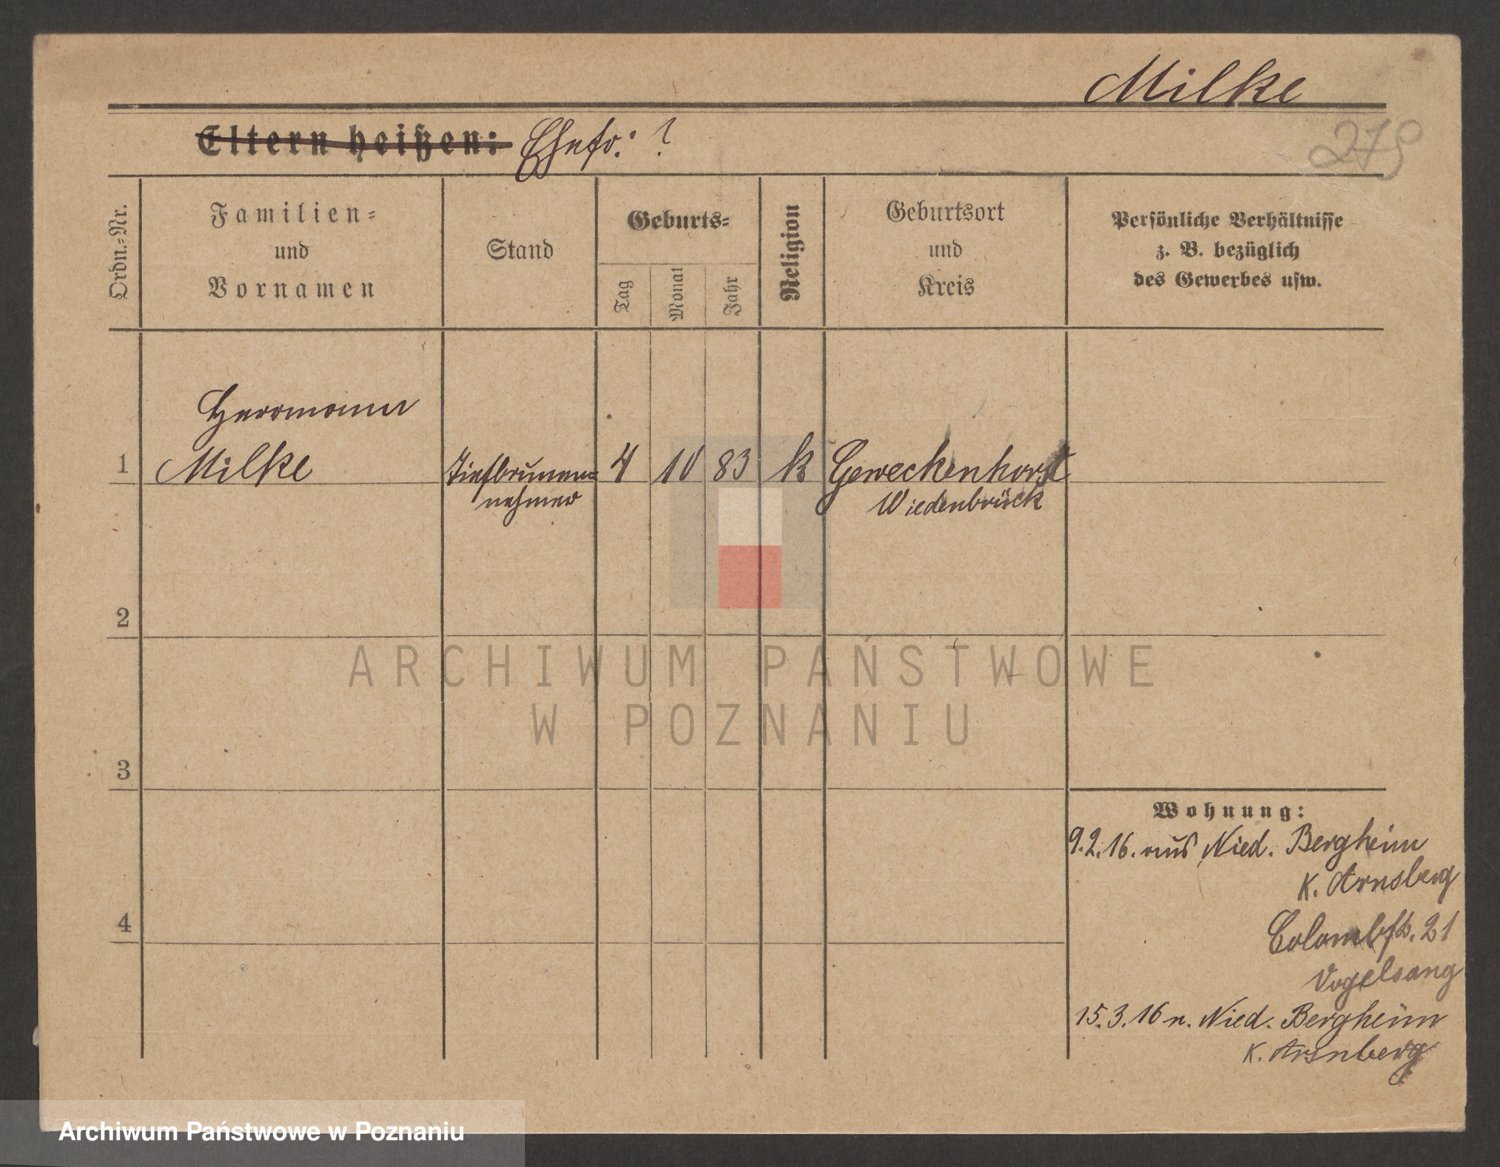 Milke
275
Eltern heißen: Ehefr: ?
Ordn.-Nr.
Familien-
und
Vornamen
Stand
Geburts-
Tag
Monat
Jahr
Religion
Geburtsort
und
Kreis
Persönliche Verhältnisse
z. B. bezüglich
des Gewerbes usw.
Herrmann
1 Milke Tiefbrunnen- 4 10 83 k Geweckenhorst
nehmer Wiedenbrück
2
3
4
Wohnung:
9.2.16. aus Nied. Bergheim
K. Arnsberg
21
Vogelsang
15.3.16 n. Nied. Bergheim
K. Arsnberg
ARCHIWUM PAŃSTWOWE
W POZNANIU
Archiwum Państwowe w Poznaniu